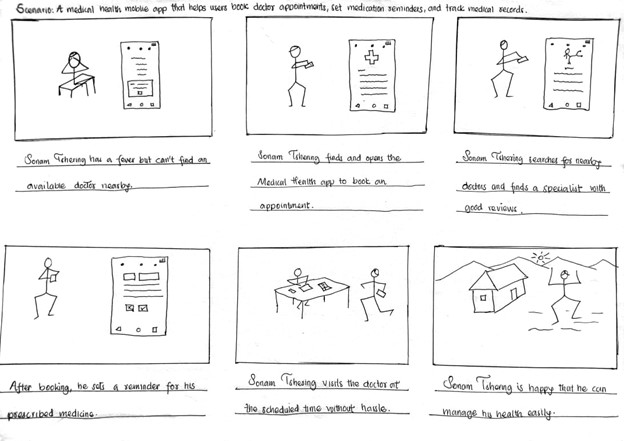 Scenario: A medical health mobile app that helps users book doctor appointments, set medication reminders, and track medical records.
Sonam Tshering has a fever but can't find an
available doctor nearby.
Sonam Tshering finds and opens the
Medical Health app to book an
appointment.
Sonam Tshering searches for nearby
doctors and finds a specialist with
good reviews.
After booking, he sets a reminder for his
prescribed medicine.
Sonam Tshering visits the doctor at
the scheduled time without hassle.
Sonam Tshering is happy that he can
manage his health easily.